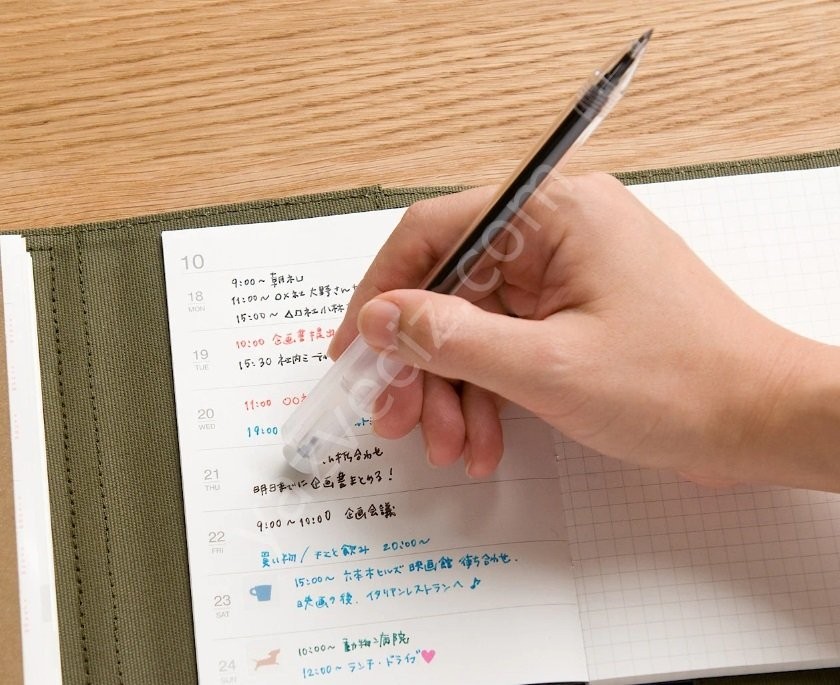 10
18
MON
9:00〜 朝礼
11:00〜 ○×社 大野さん
15:00〜 △□社 小林
19
TUE
10:00 企画書提出
15:30 社内ミーティ
20
WED
11:00 ○○
19:00
21
THU
打ち合わせ
明日までに企画書まとめる!
22
FRI
9:00〜10:00 企画会議
買い物/ 飲み 20:00〜
23
SAT
15:00〜 六本木ヒルズ 映画館 待ち合わせ.
映画の後、イタリアンレストランへ♪
24
SUN
10:00〜 動物病院
12:00〜 ランチ・ドライブ♥